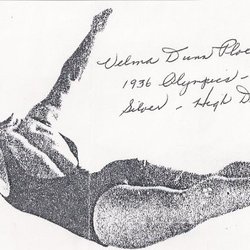 Velma Dunn Ploe
1936 Olympics -
Silver - High D